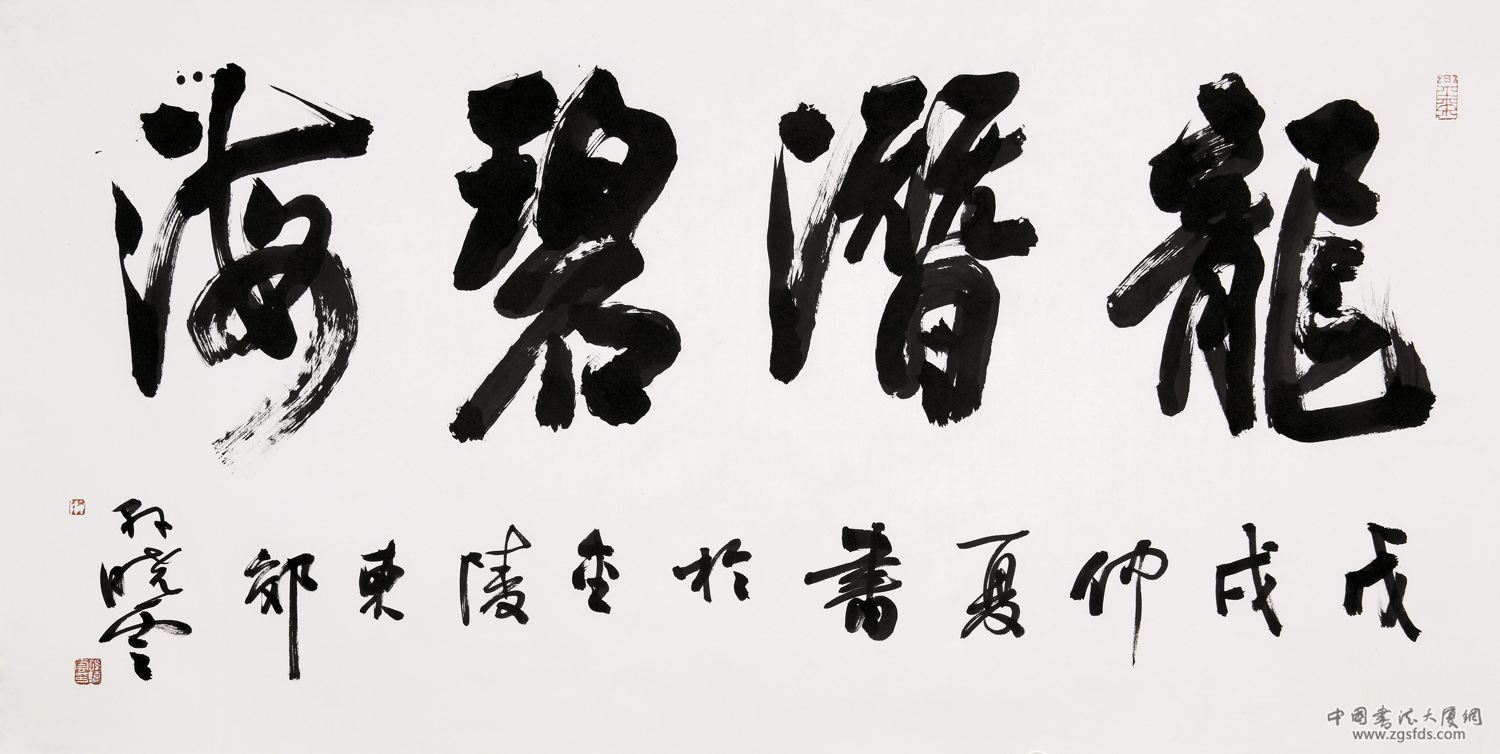 龍潛碧海
戊戌仲夏書於金陵東郊
孙晓云
中国書法大厦網
www.zgsfds.com